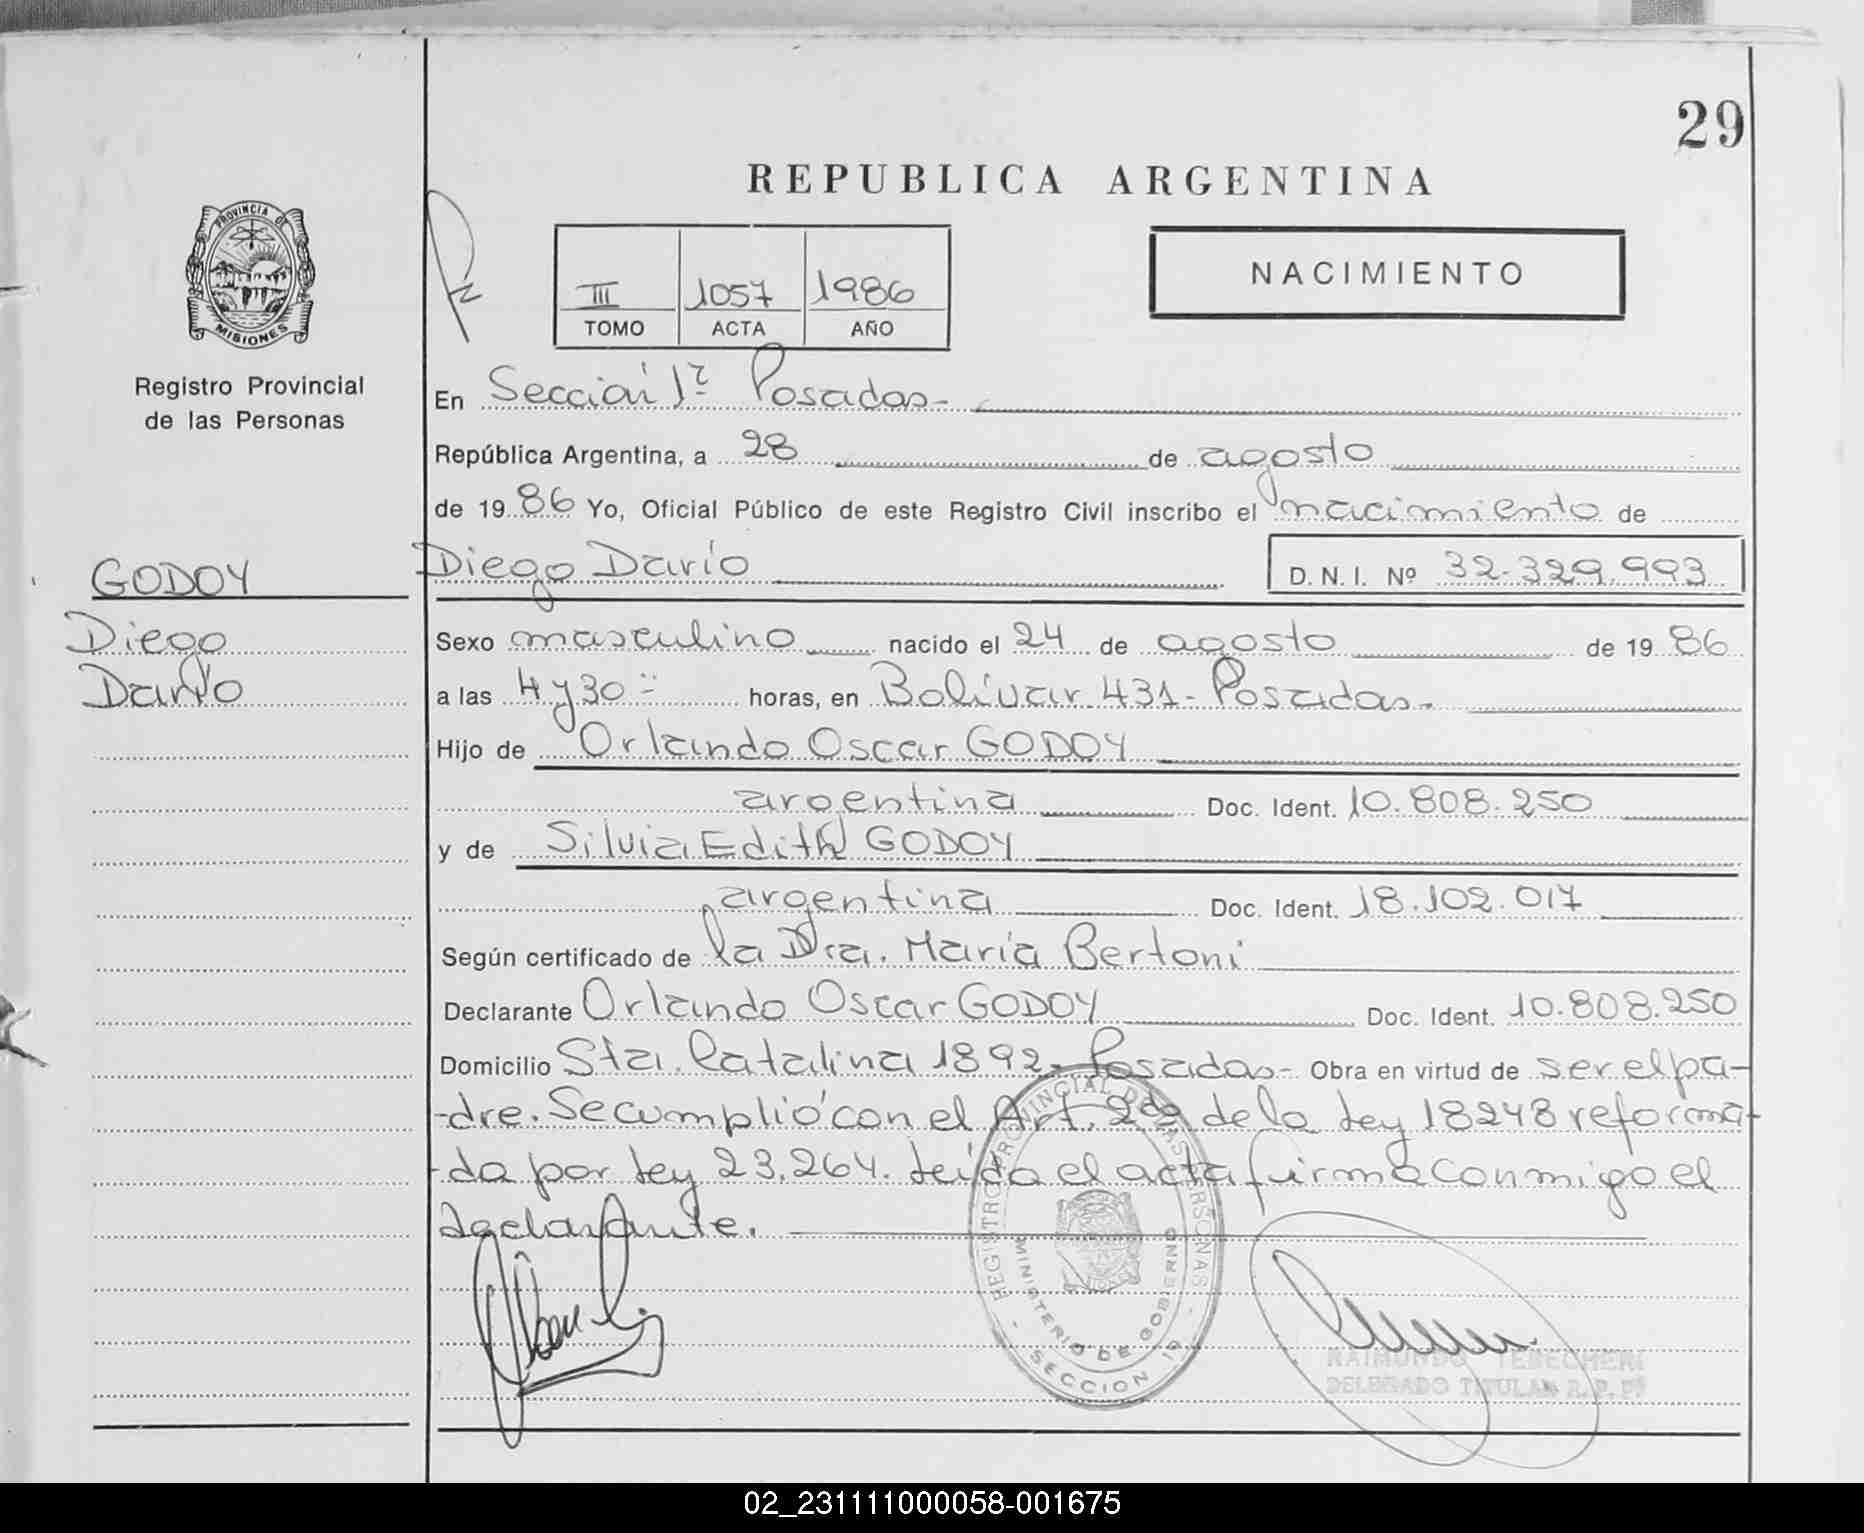 29
REPUBLICA ARGENTINA
PROVINCIA DE
MISIONES
Registro Provincial
de las Personas
III 1057 1986
TOMO ACTA AÑO
NACIMIENTO
En Sección 1ª Posadas-
República Argentina, a 28 de agosto
de 1986 Yo, Oficial Público de este Registro Civil inscribo el nacimiento de
GODOY
Diego Darío D. N. I. Nº 32.329.993
Diego
Darío
Sexo masculino nacido el 24 de agosto de 1986
a las 4 y 30 horas, en Bolívar 431 - Posadas.
Hijo de Orlando Oscar GODOY
argentina Doc. Ident. 10.808.250
y de Silvia Edith GODOY
argentina Doc. Ident. 18.102.017
Según certificado de la Dra. María Bertoni
Declarante Orlando Oscar GODOY Doc. Ident. 10.808.250
Domicilio Sta. Catalina 1892- Posadas- Obra en virtud de ser el pa-
-dre. Se cumplió con el Art. 2do de la Ley 18248 reforma-
-da por Ley 23.264. Leída el acta firma conmigo el
declarante.
REGISTRO PROVINCIAL DE LAS PERSONAS
MINISTERIO DE GOBIERNO
SECCION 1ª
RAIMUNDO TEBECHERI
DELEGADO TITULAR R. P. P.
02_231111000058-001675